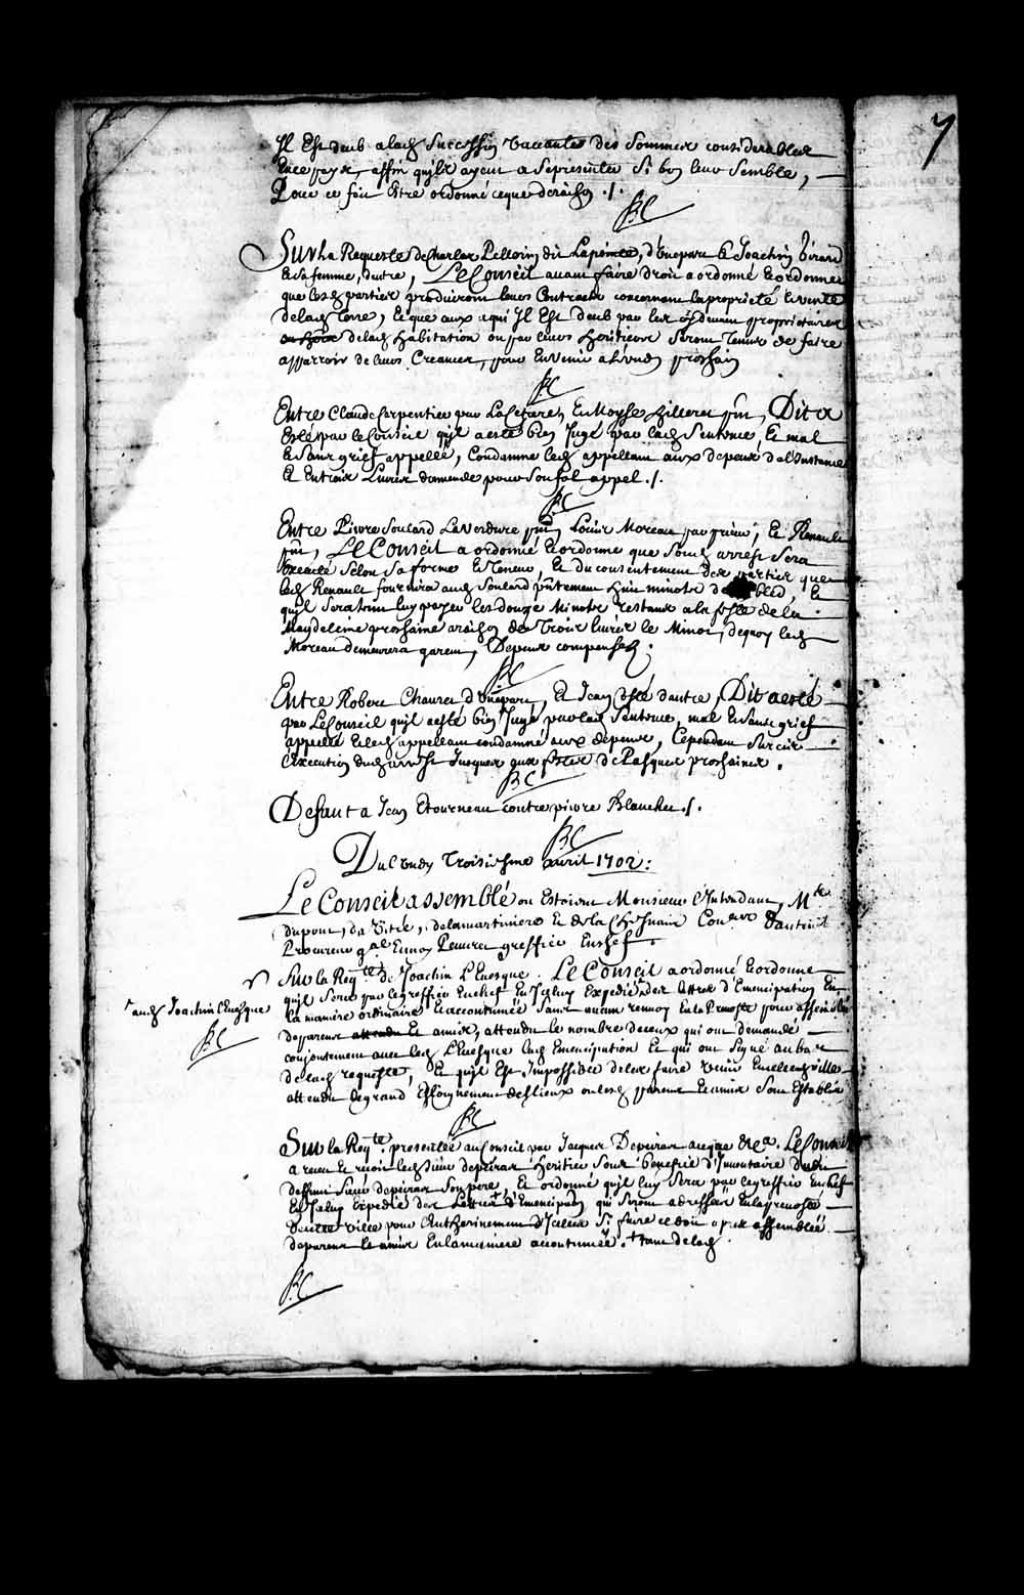 7
Il Est deub a lad. Succession Vaccante des Sommes considerables
En ce pays, affin qu'ils ayent a Se presenter Si bon leur Semble,
Pour ce fait Estre ordonné ce que de raison ./.
BC
Sur la Requeste de Charles Pelloin dit Lapointe, d'une part Et Joachin Girard
Et Sa femme, d'autre, Le Conseil avant faire droit a ordonné Et ordonne
que lesd. parties produiront leurs Contracts concernant la proprieté Et vente
de lad. Terre, Et que ceux a qui Il Est deub par les cy devant proprietaires
de lad. habitation ou par leurs heritiers Seront Tenus de faire
apparroir de leurs Creances, pour En Venir a Lundy prochain
BC
Entre Claude Carpentier par La Cetiere, Et Moyse Hilleret pnt, Dit a
Esté par le Conseil qu'il a esté bien Jugé par lad. Sentence, Et mal
Et Sans grief appellé, Condamne led. appellant aux depens de l'Instance
Et En trois Livres damende pour Son fol appel ./.
BC
Entre Pierre Soulard La Verdure pnt, Louis Moreau par, Et Renault
pnt, Le Conseil a ordonné Et ordonne que Son d. arrest Sera
Executé Selon Sa forme Et Teneur, Et du consentement des parties que
led. Renault fournira aud. Soulard pntement huit minots de bled, Et
qu'il Sera tenu luy payer les douze Minots restans a la feste de la
Magdeleine prochaine a raison de Trois livres le Minot, dequoy led.
Moreau demeurera garent, Depens compensez.
BC
Entre Robert Chauret d'une part, Et Jean Costé d'autre, Dit a esté
par Le Conseil qu'il a esté bien Jugé par lad. Sentence, mal Et Sans grief
appellé Et led. appellant condamné aux depens, Cependant Surcis
L'Execution dud. arrest Jusques aux festes de Pasques prochaines.
BC
Defaut a Jean Etourneau contre pierre Blanchet ./.
BC
Du Lundy Troisiesme avril 1702:
Le Conseil assemblé ou Estoient Monsieur L'Intendant, Mrs
dupont, da Vitré, delamartiniere Et de la Chesnaie Coners Dauteuil
Procureur gnal Et moy Peuvret greffier En chef.
Sur la Reqte de Joachin L'Evesque. Le Conseil a ordonné Et ordonne
qu'il Sera par le greffier En chef En Iceluy Expedié des lettres d'Emancipation En
^ aud. Joachin L'Evesque
BC
la maniere ordinaire Et accoutumée Sans aucun renvoy En la Prevosté pour assemblée
de parens attendu Et amis, attendu le nombre de ceux qui ont demandé
conjointement avec led. L'Evesque lad. Emancipation Et qui ont Signé au bas
de lad. requeste, Et qu'il Est Impossible de les faire venir En cette ville
attendu le grand Esloignement des lieux ou lesd. parens Et amis Sont Establis
BC
Sur la Reqte presentée au Conseil par Jacques Depeiras. Le Conseil
a receu Et reçoit led. Sieur depeiras heritier Sous benefice d'Inventaire dudit
deffunt Sieur depeiras Son pere, Et ordonné qu'il luy Sera par le greffier En chef
En Iceluy Expedié des Lettres d'Emancipation qui Seront adressées En la prevosté
de cette ville pour l'Entherinement d'Icelles Si faire ce doit apres assemblée
de parens Et amis En la maniere accoutumée. + tant de lad.
BC